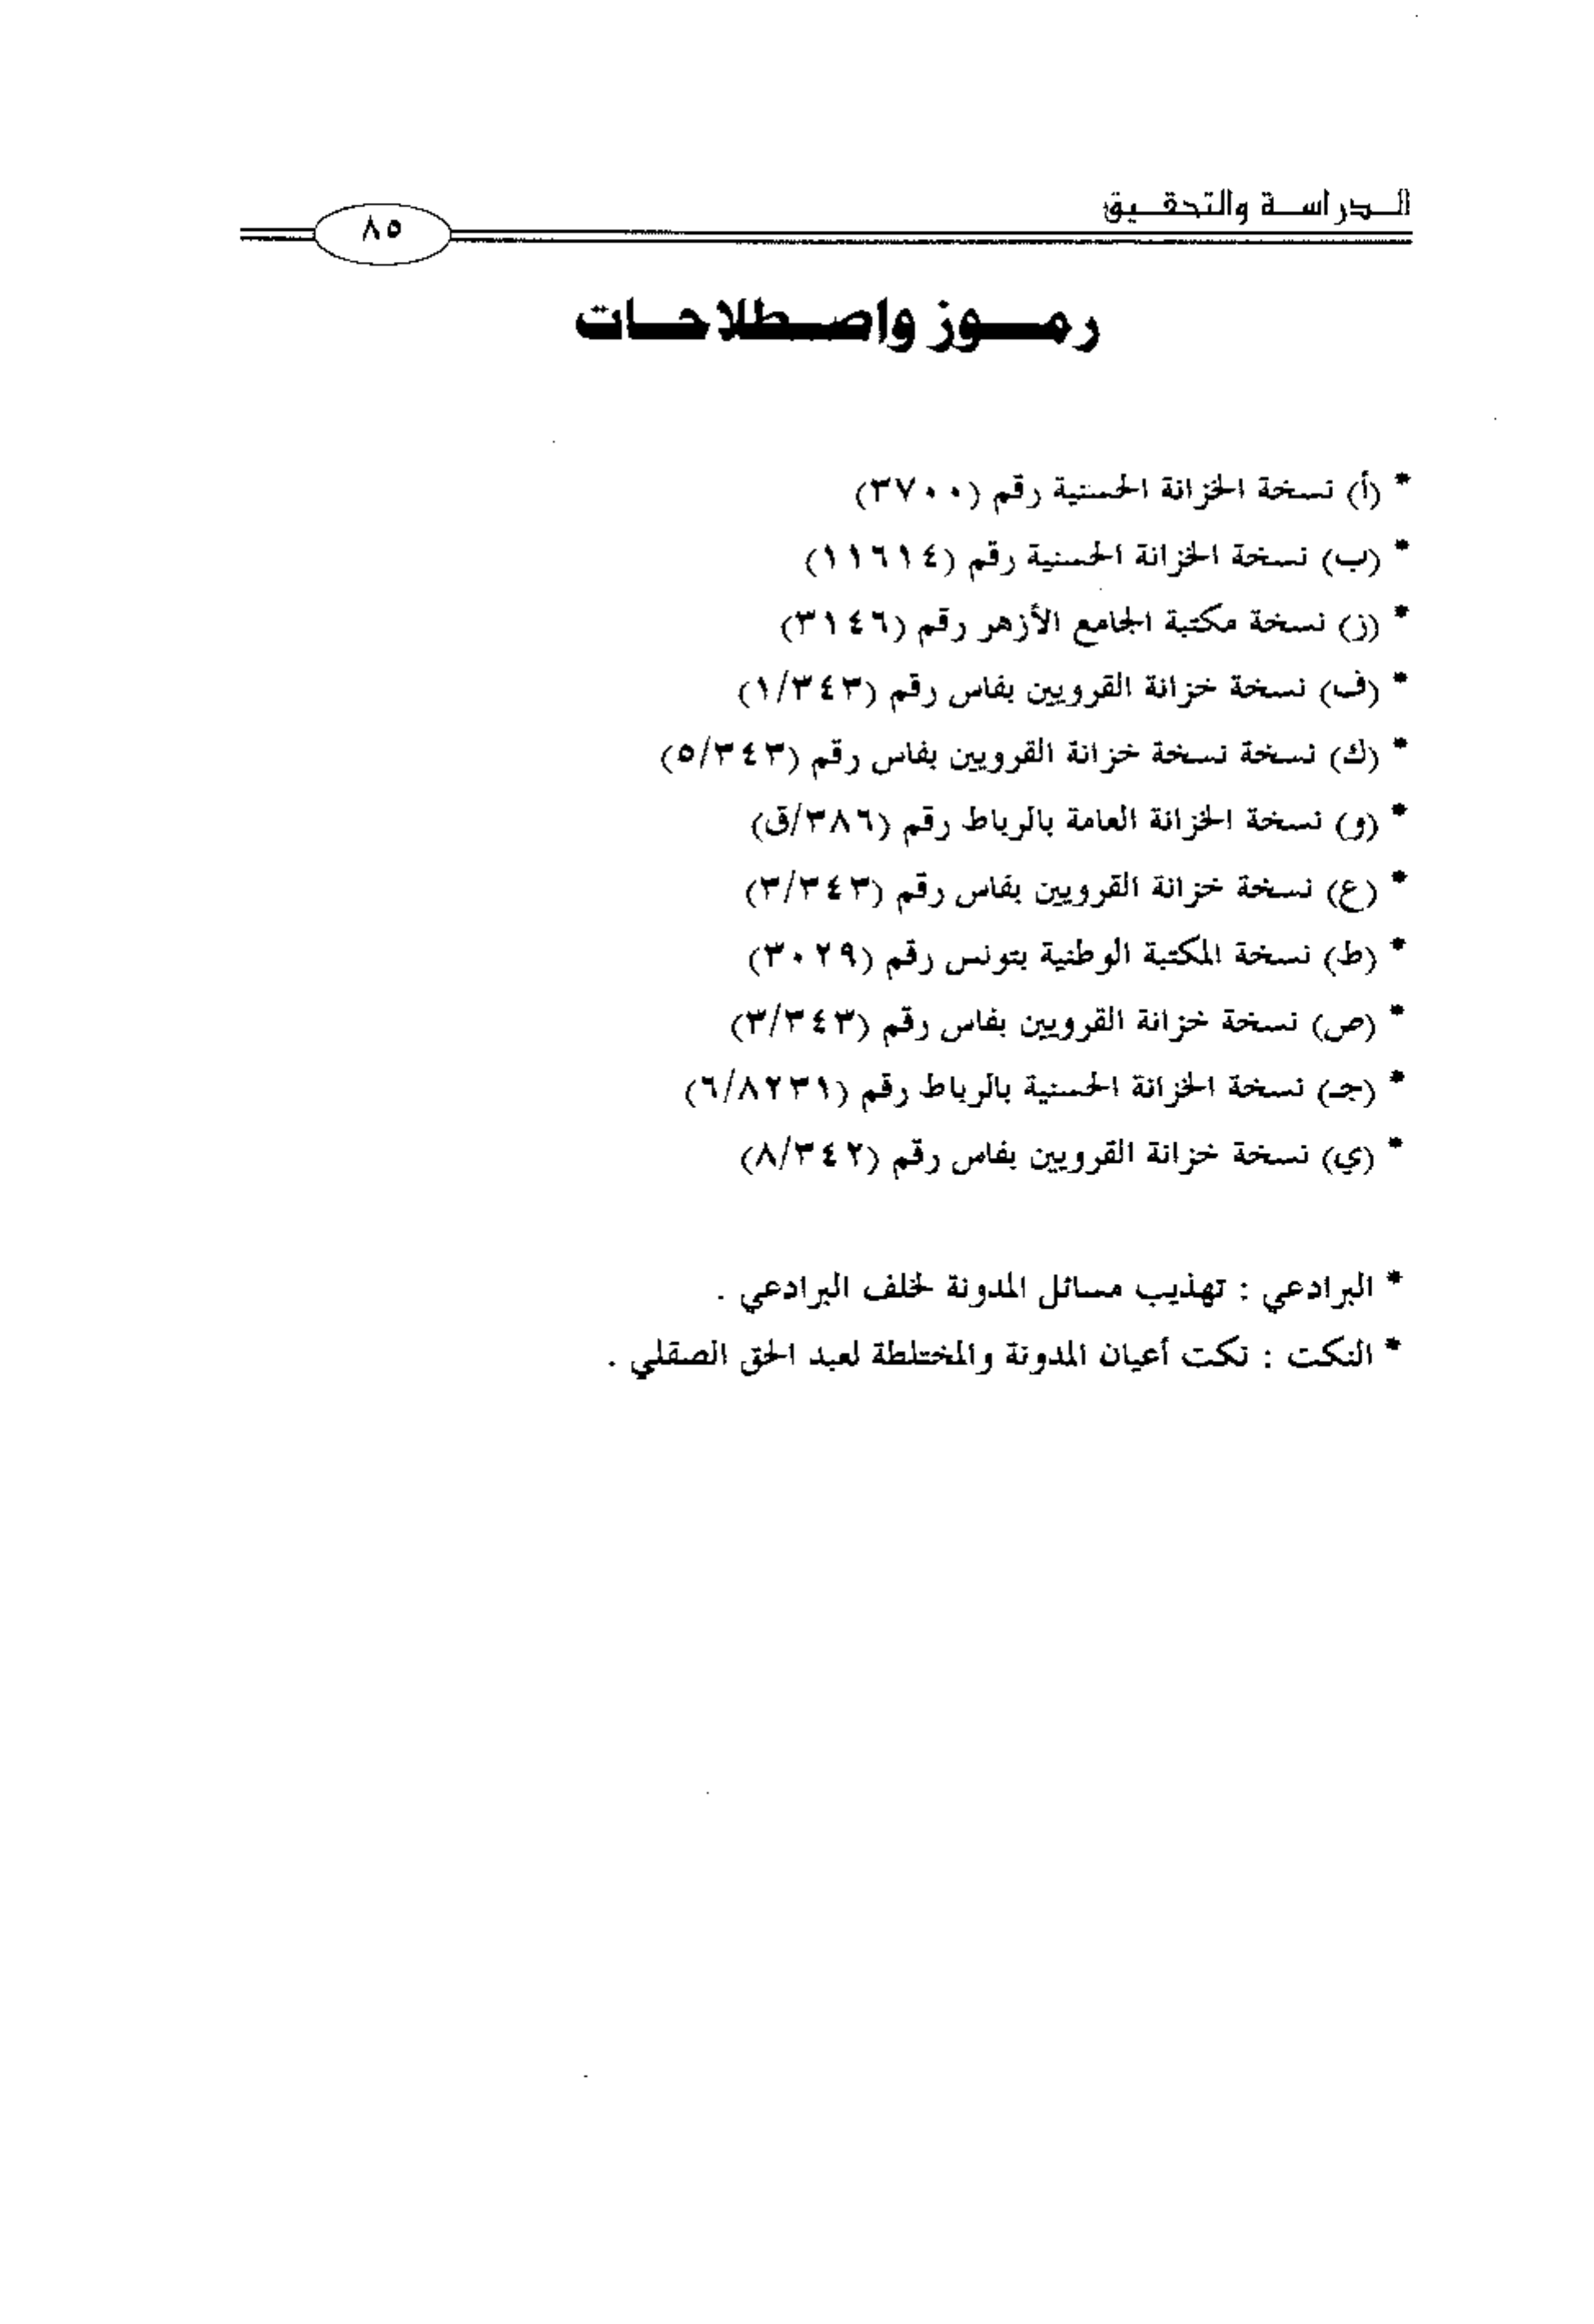 الدراسة والتحقيق
٨٥
رموز واصطلاحات
* (أ) نسخة الخزانة الحسنية رقم (٣٧٠٠)
* (ب) نسخة الخزانة الحسنية رقم (١١٦١٤)
* (ز) نسخة مكتبة الجامع الأزهر رقم (٣١٤٦)
* (ف) نسخة خزانة القرويين بفاس رقم (١/٣٤٣)
* (ك) نسخة نسخة خزانة القرويين بفاس رقم (٥/٣٤٣)
* (و) نسخة الخزانة العامة بالرباط رقم (٣٨٦/ق)
* (ع) نسخة خزانة القرويين بفاس رقم (٣/٣٤٣)
* (ط) نسخة المكتبة الوطنية بتونس رقم (٣٠٢٩)
* (ص) نسخة خزانة القرويين بفاس رقم (٣/٣٤٣)
* (جـ) نسخة الخزانة الحسنية بالرباط رقم (٦/٨٢٣١)
* (ي) نسخة خزانة القرويين بفاس رقم (٨/٣٤٢)
* البرادعي : تهذيب مسائل المدونة لخلف البرادعي .
* النكت : نكت أعيان المدونة والمختلطة لعبد الحق الصقلي .